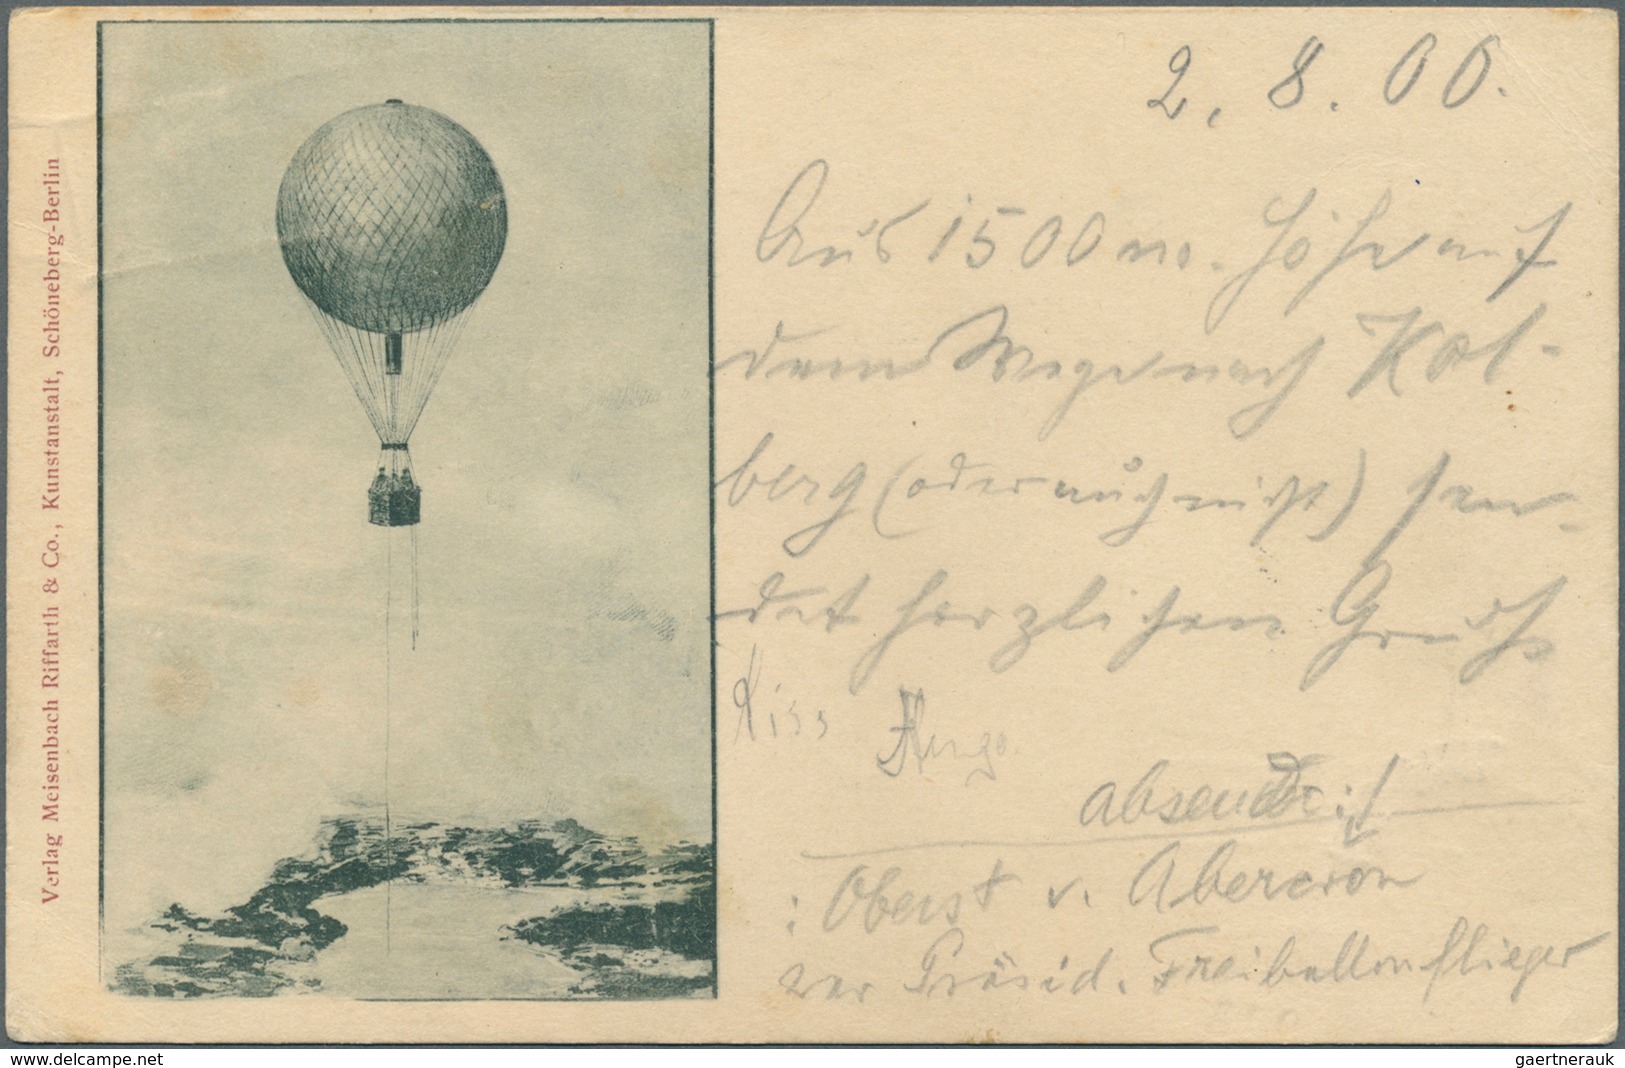 Verlag Meisenbach Riffarth & Co., Kunstanstalt, Schöneberg-Berlin
2. 8. 00.
Aus 1500 m. Höhe auf
dem Wege nach Kol-
berg (oder auch nicht) sen-
det herzlichen Gruß
Hugo.
absender:
: Oberst v. Abercron
Präsid. Freiballonflieger
www.delcampe.net
gaertnerauk